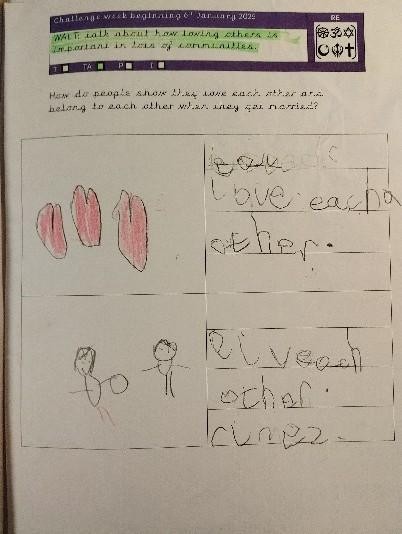 Challenge week beginning 6th January 2025
RE
WALT: talk about how loving others is
important in lots of communities.
T TA P I
How do people show they love each other and
belong to each other when they get married?
love each
other.
each
other